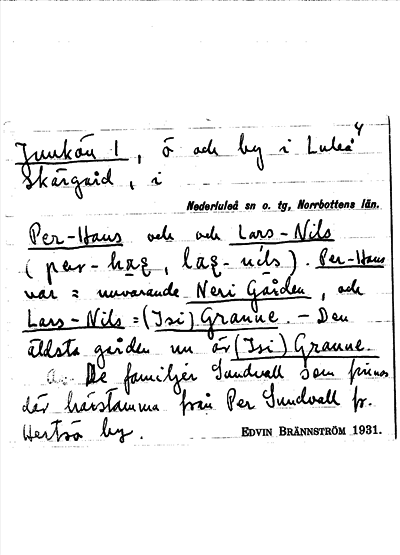 4
Junkön 1, ö och by i Luleå
Skärgård, i
Nederluleå sn o. tg, Norrbottens län.
Per-Hans och och Lars-Nils
(per-
). Per-Hans
var = nuvarande Neri Gården, och
Lars-Nils = (Isi) Granne. – Den
äldsta gården nu är (Isi) Granne.
De familjer Sundvall som finnes
där härstamma från Per Sundvall fr.
Hertsö by.
EDVIN BRÄNNSTRÖM 1931.